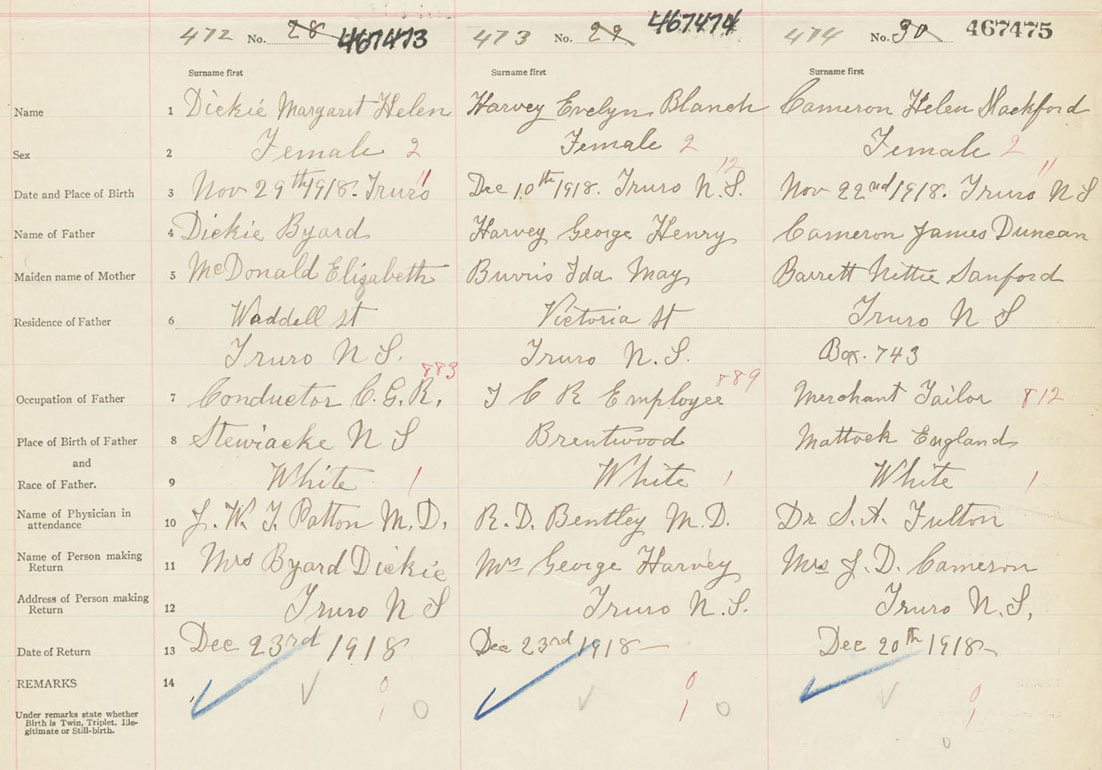 472 No. 28 467473 473 No. 29 467474 474 No. 30 467475
Surname first Surname first Surname first
Name 1 Dickie Margaret Helen Harvey Evelyn Blanch Cameron Helen Mackford
Sex 2 Female 2 Female 2 Female 2
12
11 11
Date and Place of Birth 3 Nov 29th 1918. Truro Dec 10th 1918. Truro N.S. Nov 22nd 1918. Truro N S
Name of Father 4 Dickie Byard Harvey George Henry Cameron James Duncan
Maiden name of Mother 5 McDonald Elizabeth Burris Ida May Barrett Nettie Sanford
Residence of Father 6 Waddell St Victoria St Truro N S
Truro N S. Truro N.S. Box. 743
883 889
Occupation of Father 7 Conductor C.G.R. I C R Employee Merchant Tailor 812
Place of Birth of Father 8 Stewiacke N S Brentwood Mattock England
and
Race of Father. 9 White 1 White 1 White 1
Name of Physician in
attendance 10 J. W. T. Patton M.D. R. D. Bentley M.D. Dr S. A. Fulton
Name of Person making
Return 11 Mrs Byard Dickie Mrs George Harvey Mrs J. D. Cameron
Address of Person making
Return 12 Truro N S Truro N.S. Truro N.S,
Date of Return 13 Dec 23rd 1918 Dec 23rd 1918– Dec 20th 1918–
REMARKS 14 0 0 0
Under remarks state whether
Birth is Twin, Triplet, Ille-
gitimate or Still-birth. 1 0 1 0 1
0